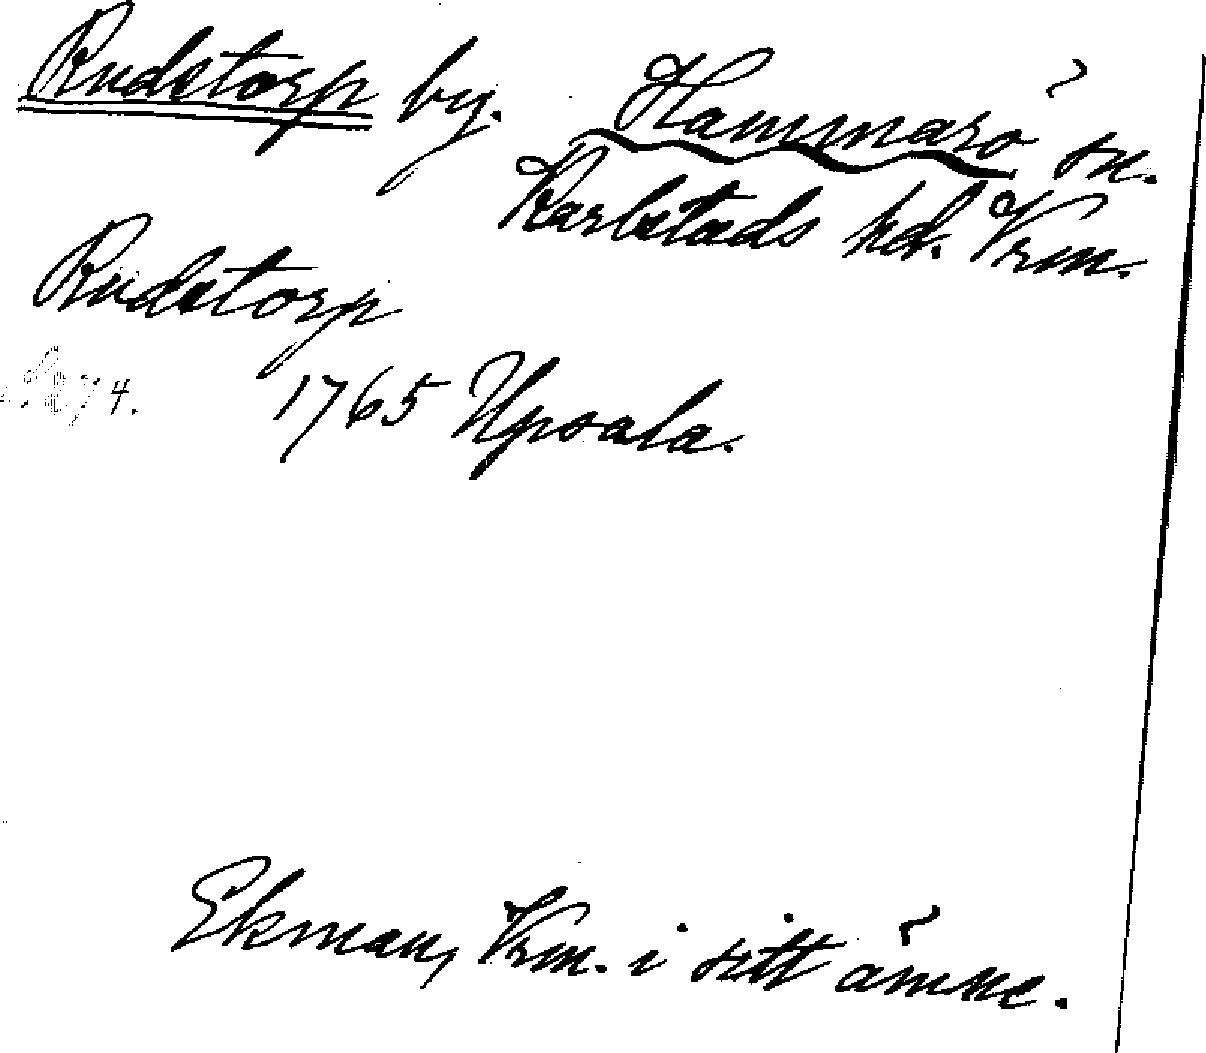 Rudstorp by. Hammarö sn.
Karlstads hd. Vrm.
Rudstorp
4. 1765 Upsala.
Ekman, Vrm. i sitt ämne.